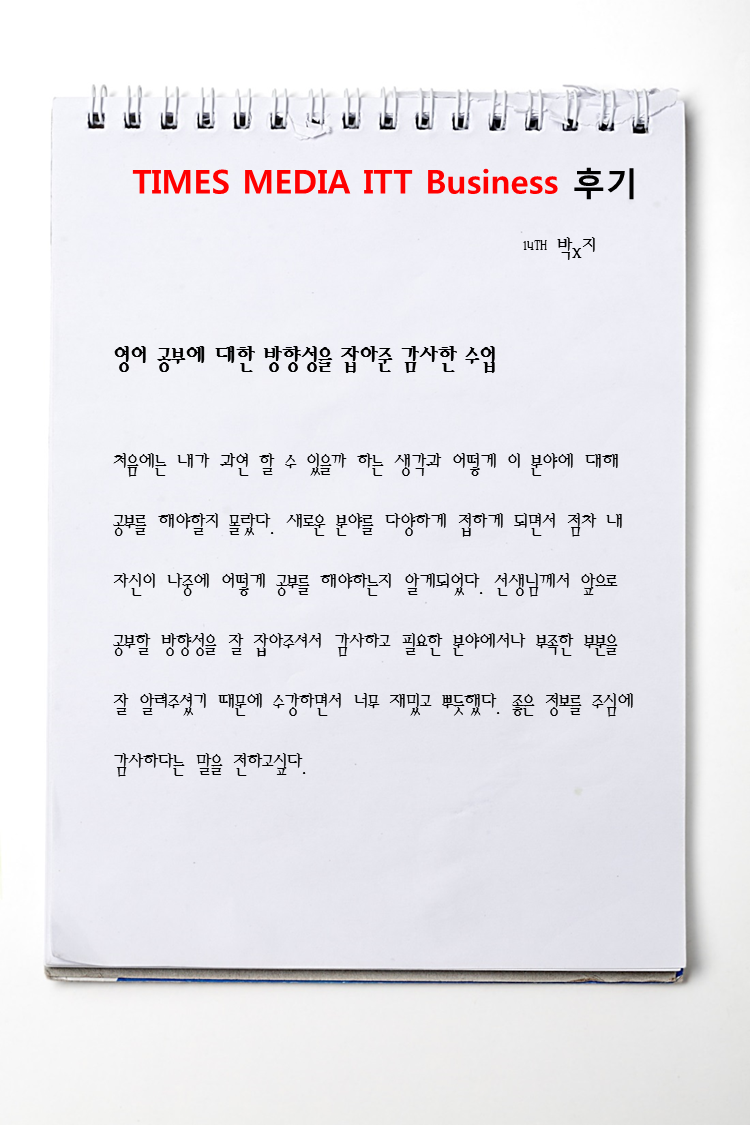 TIMES MEDIA ITT Business 후기
14TH 박x지
영어 공부에 대한 방향성을 잡아준 감사한 수업
처음에는 내가 과연 할 수 있을까 하는 생각과 어떻게 이 분야에 대해
공부를 해야할지 몰랐다. 새로운 분야를 다양하게 접하게 되면서 점차 내
자신이 나중에 어떻게 공부를 해야하는지 알게되었다. 선생님께서 앞으로
공부할 방향성을 잘 잡아주셔서 감사하고 필요한 분야에서나 부족한 부분을
잘 알려주셨기 때문에 수강하면서 너무 재밌고 뿌듯했다. 좋은 정보를 주심에
감사하다는 말을 전하고싶다.